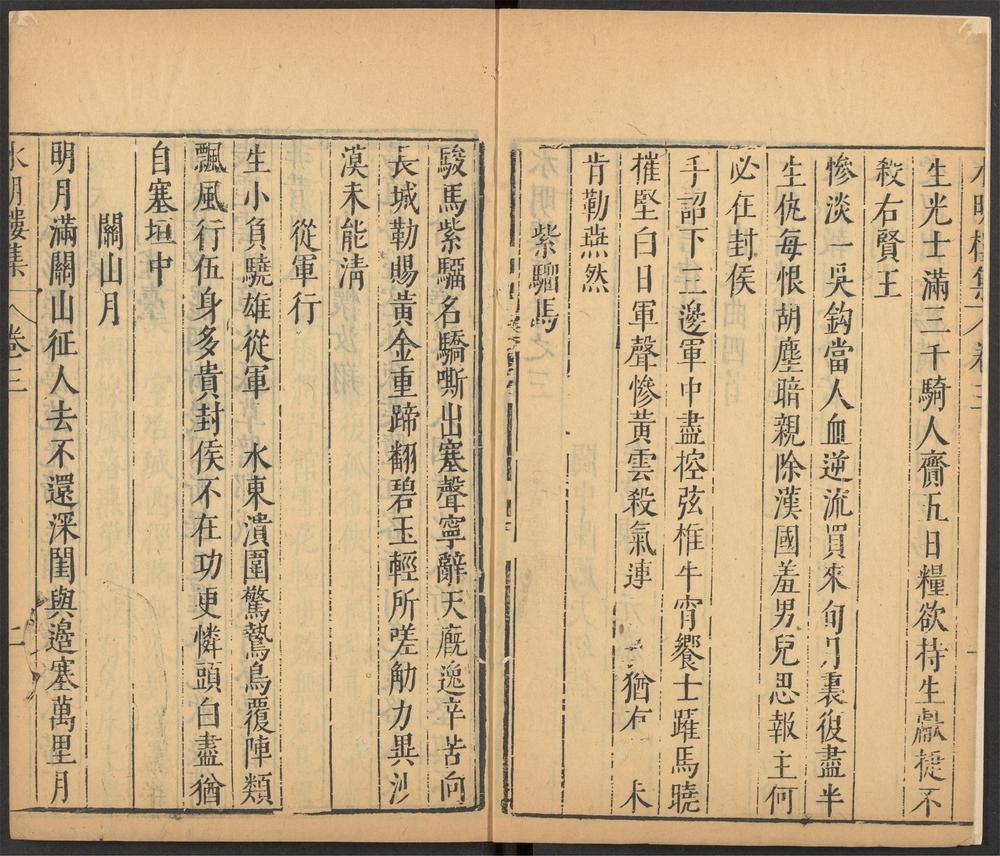 水明樓集 卷三
生光士滿三千騎人齎五日糧欲持生獻捷不
殺右賢王
慘淡一吳鈎當人血逆流買來旬月裏復盡半
生仇每恨胡塵暗親除漢國羞男兒思報主何
必在封侯
手詔下三邊軍中盡控弦椎牛宵饗士躍馬曉
摧堅白日軍聲慘黃雲殺氣連 猶右 未
肯勒燕然
紫騮馬
駿馬紫騮名驕嘶出塞聲寧辭天廐逸辛苦向
長城勒賜黃金重蹄翻碧玉輕所嗟觔力異沙
漠未能淸
從軍行
生小負驍雄從軍 水東潰圍驚鷙鳥覆陣類
飄風行伍身多貴封侯不在功更憐頭白盡猶
自塞垣中
關山月
明月滿關山征人去不還深閨與邉塞萬里月
水明樓集 卷三 二